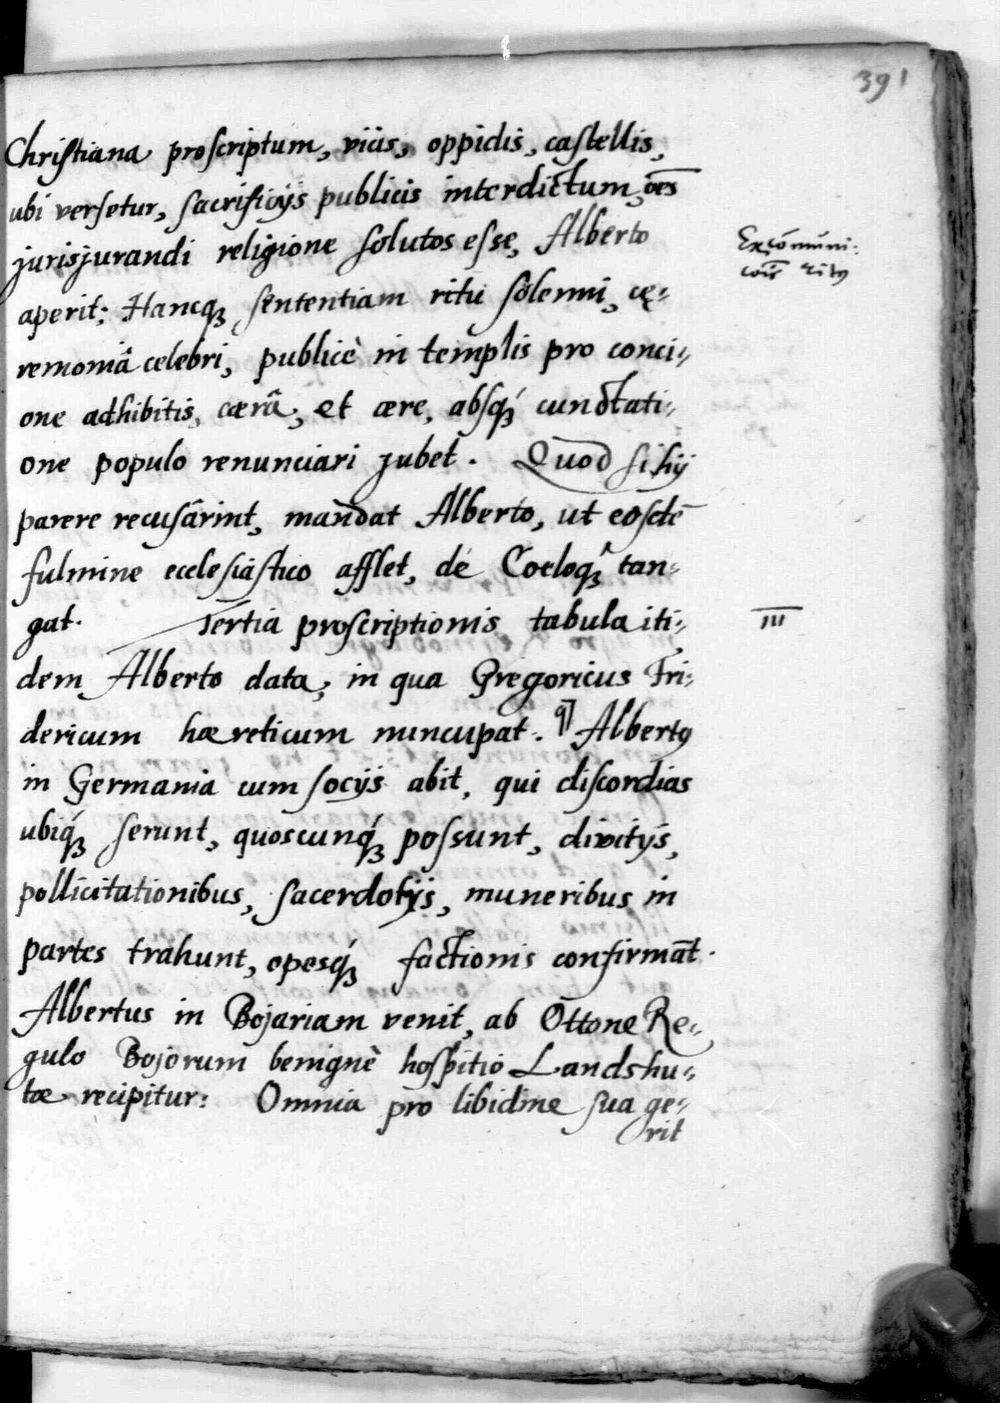 391
Christiana proscriptum, vicis, oppidis, castellis,
ubi versetur, sacrificijs publicis interdictum, oēs
jurisjurandi religione solutos esse, Alberto
Excōmūni:
aperit; Hancq́ꝫ sententiam ritu sölenni, cę-
remoniâ celebri, publicè in templis pro conci-
one adhibitis, cærâ, et ære, absq́ꝫ cunctati-
one populo renunciari jubet. Quod si hij
parere recusârint, mandat Alberto, ut eosdē
fulmine ecclesiástico afflet, de Coeloq́ꝫ tan-
gat. Tertia proscriptionis tabula iti-
III
dem Alberto data, in qua Gregoricus Fri-
dericum hæreticum nuncupat. ¶ Albertꝰ
in Germania cum socijs abit, qui discordias
ubiq́ꝫ serunt, quoscunq́ꝫ possunt, divitijs,
pollicitationibus, sacerdotijs, muneribus in
partes trahunt, opesq́ꝫ factionis confirmāt.
Albertus in Bojariam venit, ab Ottone Re-
gulo Bojorum benignè hospitio Landshu-
tæ recipitur: Omnia pro libidine sua ge-
rit